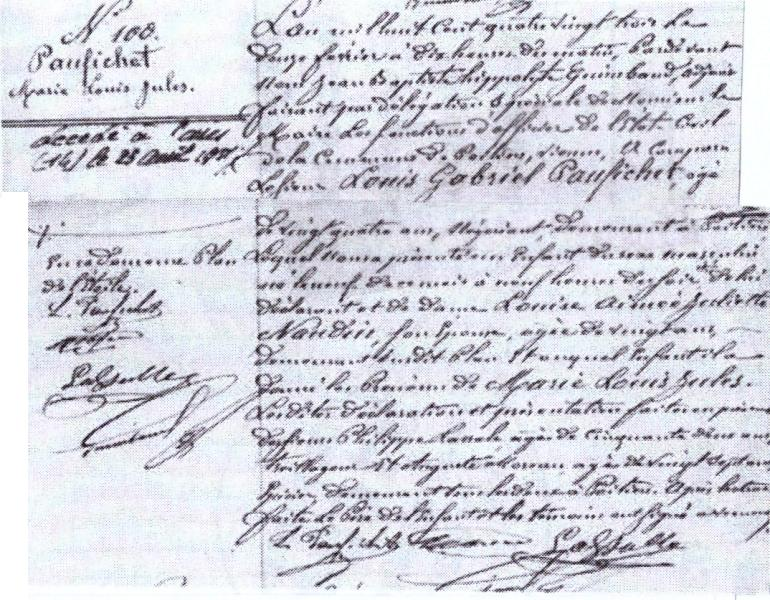 N° 108.
Paufichet
Marie Louis Jules.
décédé à
(14) le 23 Avril
L'an mil huit cent quatre vingt trois le
douze février à dix heures du matin, Pardevant
Nous Jean Baptiste Hippolyte Guimbaud, adjoint
faisant par délégation spéciale de Monsieur le
Maire les fonctions d'officier de l'Etat Civil
de la Commune de Poitiers, Vienne, A Comparu
Le sieur Louis Gabriel Paufichet, âgé
de vingt quatre ans, Négociant, Demeurant à Poitiers
lequel nous a présenté un Enfant du sexe masculin
né le neuf de ce mois à neuf heures du soir, de lui
déclarant et de dame Louise Aimée Juliette
Naudin, son Epouse, âgée de vingt ans,
Demeurant susdit Plan Et auquel Enfant il a
donné les Prénoms de Marie Louis Jules.
Lesdites déclaration et présentation faites en présence
des sieurs Philippe Lassale âgé de cinquante deux ans,
Et Auguste âgé de vingt sept ans
demeurant tous les deux à Poitiers. Après lecture
faite le Père de l'Enfant et les témoins ont signé avec nous
en sa demeure Plan
de l'Etoile.
L. Paufichet
Lassalle
L. Paufichet
Lassalle